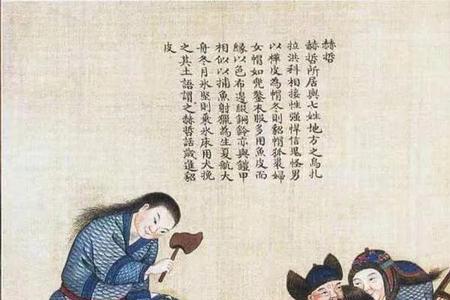 赫哲
赫哲所居與七姓地方之烏扎
拉洪科相接性强悍信鬼怪男
以樺皮為帽冬則貂帽狐裘婦
女帽如兜鍪衣服多用魚皮而
緣以色布邊綴銅鈴亦與鎧甲
相似以捕魚射獵為生夏航大
舟冬月氷堅則乗氷床用犬挽
之其土語謂之赫哲話歲進貂
皮